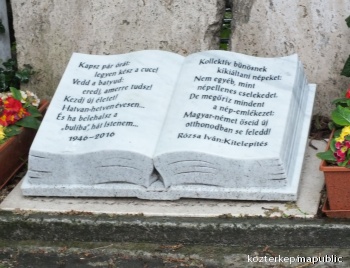 Kapsz pár órát:
legyen kész a cucc!
Vedd a batyud:
eredj, amerre tudsz!
Kezdj új életet!
Hatvan-hetven évesen...
És ha belehalsz a
„buliba", hát Istenem...
1946-2016
Kollektív bűnösnek
kikiáltani népeket:
Nem egyéb, mint
népellenes cselekedet.
De megőriz mindent
a nép-emlékezet:
Magyar-német őseid új
otthonodban se feledd!
Rózsa Iván: Kitelepítés
kozterkep.mapublic